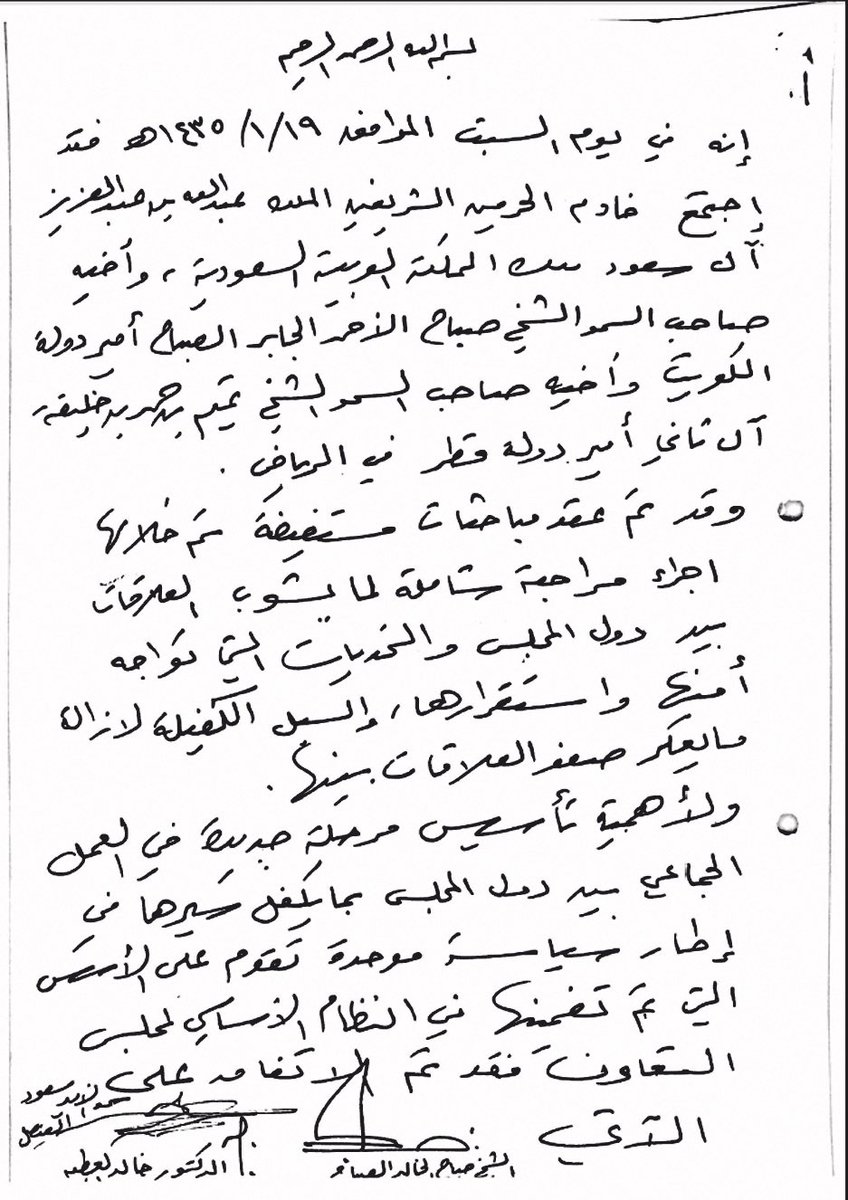 بسم الله الرحمن الرحيم
إنه في يوم السبت الموافق ١٤٣٥/١/١٩هـ فقد
إجتمع خادم الحرمين الشريفين الملك عبدالله بن عبدالعزيز
آل سعود ملك المملكة العربية السعودية، وأخيه
صاحب السمو الشيخ صباح الأحمد الجابر الصباح أمير دولة
الكويت وأخيه صاحب السمو الشيخ تميم بن حمد بن خليفه
آل ثاني أمير دولة قطر في الرياض.
وقد تم عقد مباحثات مستفيضة تم خلالها
اجراء مراجعة شاملة لما يشوب العلاقات
بين دول المجلس والتحديات التي تواجه
أمنها واستقرارها، والسبل الكفيلة لازالة
مايعكر صفو العلاقات بينها.
ولأهمية تأسيس مرحلة جديدة في العمل
الجماعي بين دول المجلس بما يكفل سيرها في
إطار سياسة موحدة تقوم على الأسس
التي تم تضمنها في النظام الأساسي لمجلس
التعاون فقد تم الاتفاق على
الآتي
سعود الفيصل
الشيخ صباح الخالد الصباح
الدكتور خالد العطيه